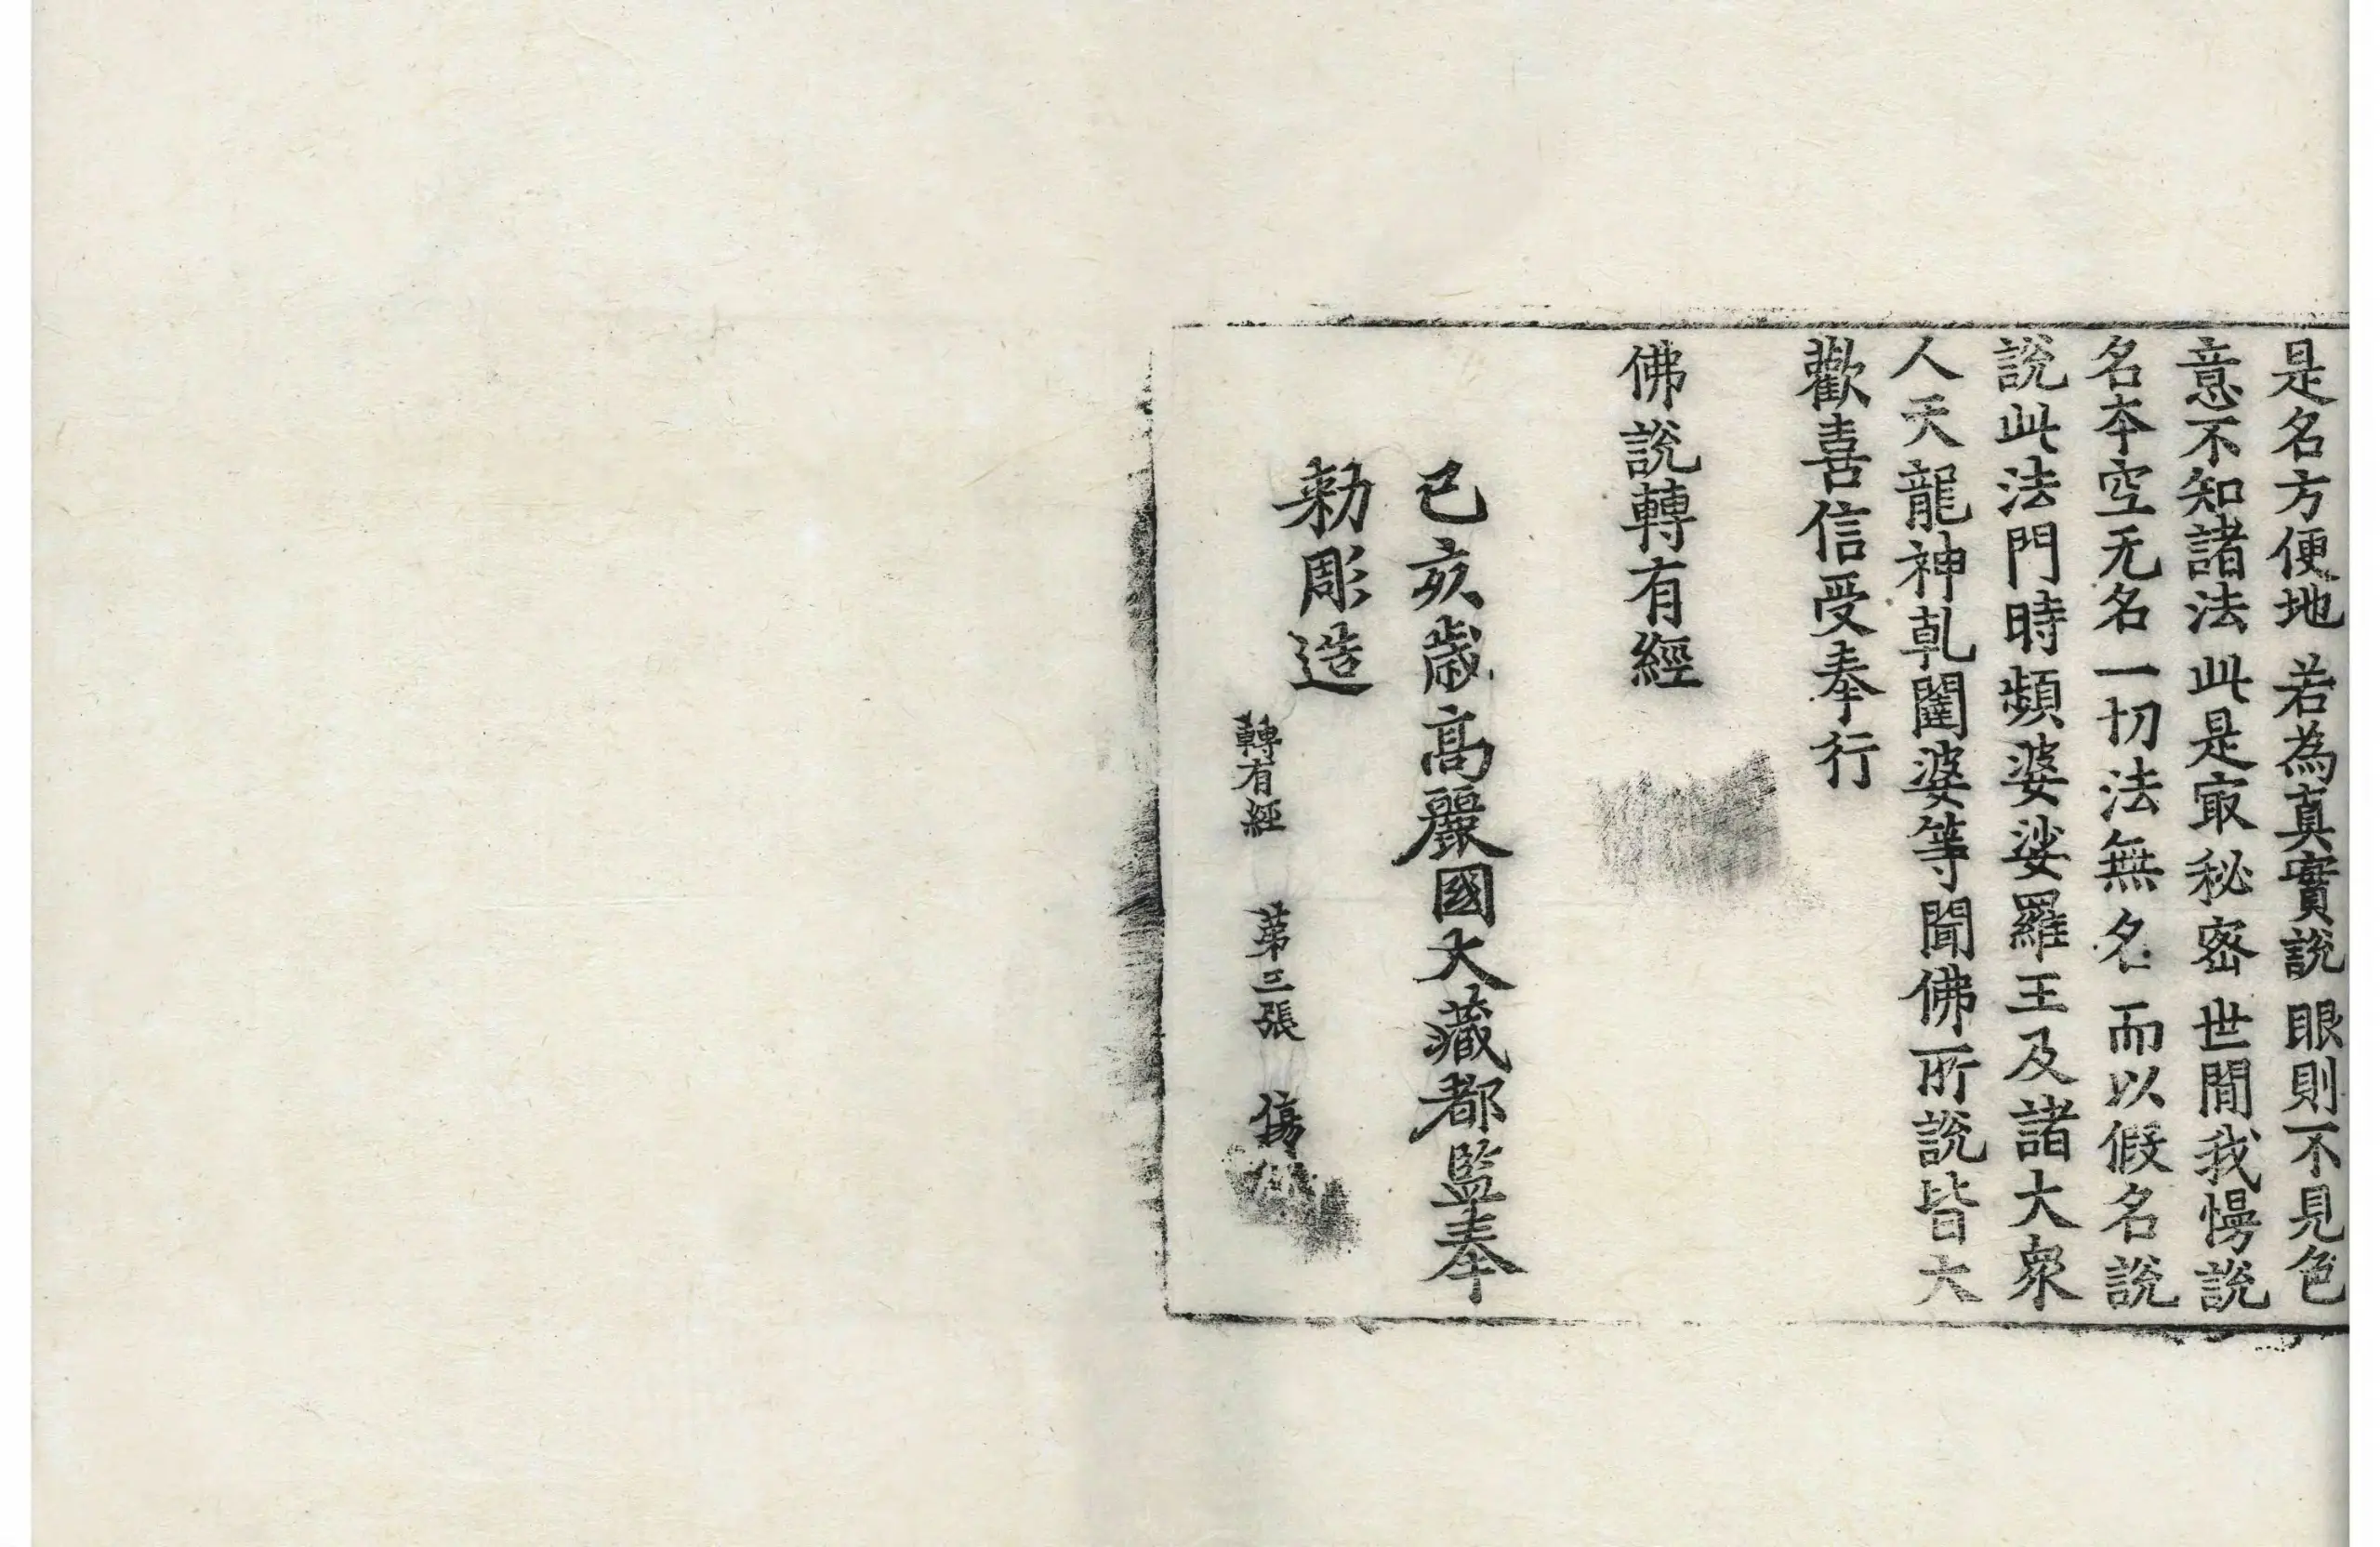 是名方便地 若為真實說 眼則不見色
意不知諸法 此是㝡秘密 世閒我慢說
名本空无名 一切法無名 而以假名說
說此法門時頻婆娑羅王及諸大衆
人天龍神乹闥婆等聞佛所說皆大
歡喜信受奉行
佛說轉有經
己亥歲高麗國大藏都監奉
勑彫造
轉有經 第三張 傷